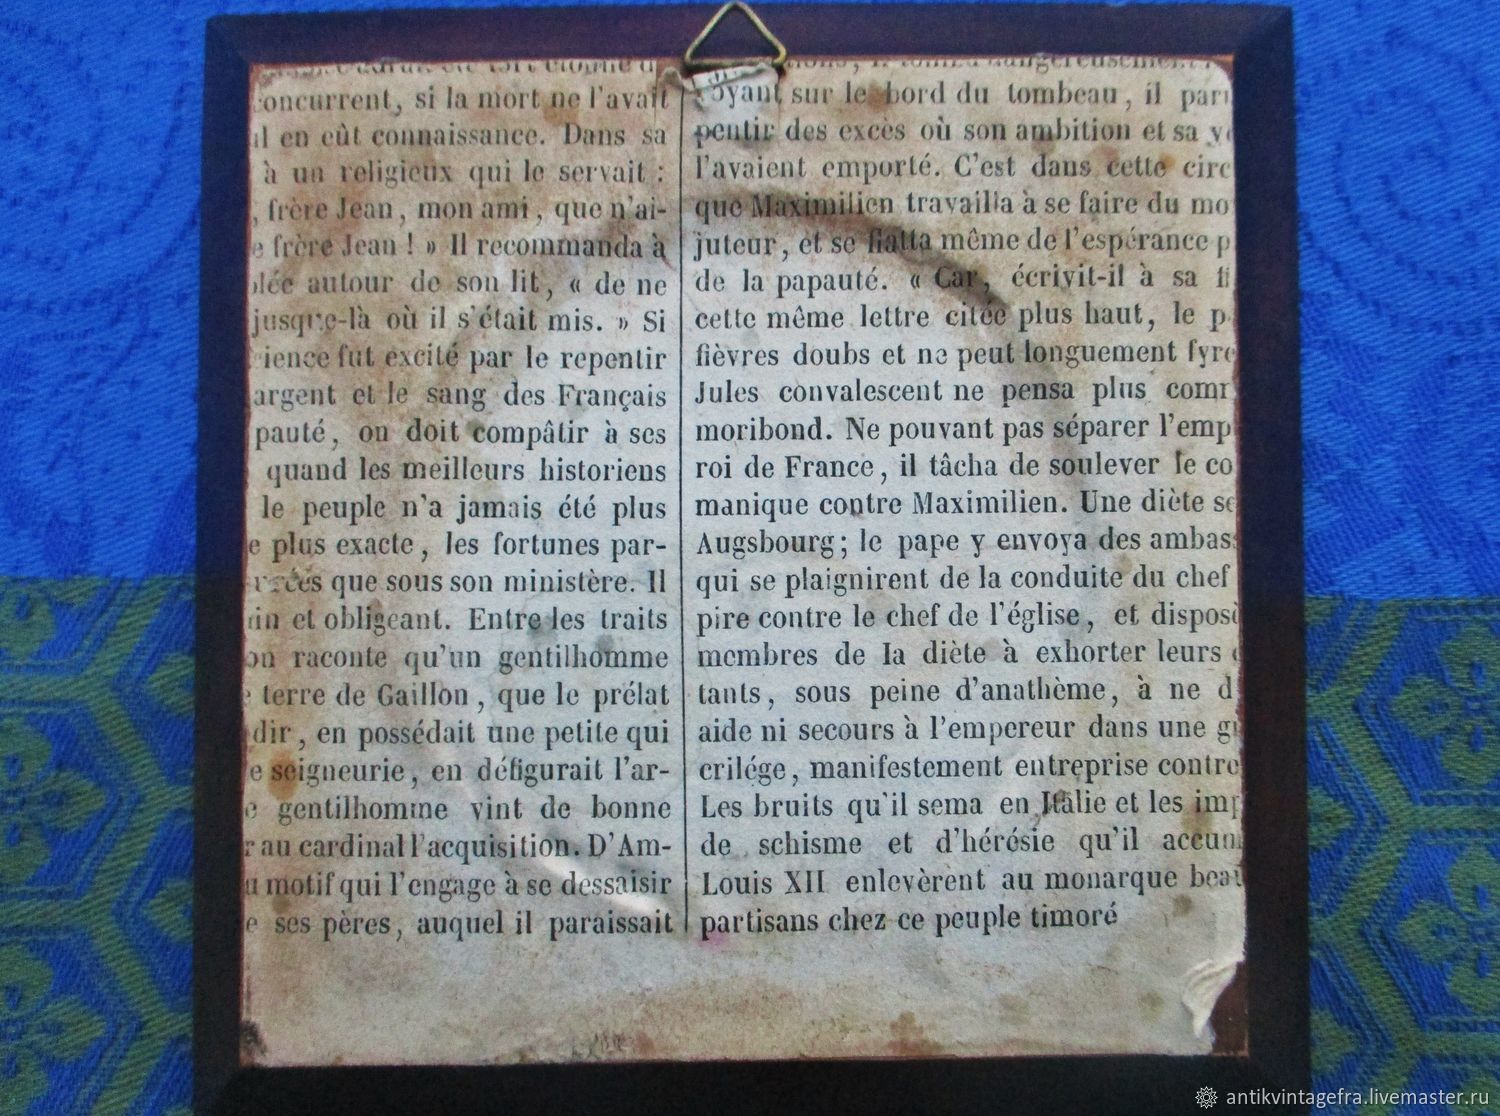 concurrent, si la mort ne l'avait
il en eût connaissance. Dans sa
à un religieux qui le servait :
, frère Jean, mon ami, que n'ai-
e frère Jean ! » Il recommanda à
autour de son lit, « de ne
jusque-là où il s'était mis. » Si
fut excité par le repentir
argent et le sang des Français
pauté, on doit compâtir à ses
quand les meilleurs historiens
le peuple n'a jamais été plus
e plus exacte, les fortunes par-
que sous son ministère. Il
in et obligeant. Entre les traits
on raconte qu'un gentilhomme
terre de Gaillon, que le prélat
dir, en possédait une petite qui
e seigneurie, en défigurait l'ar-
e gentilhomme vint de bonne
r au cardinal l'acquisition. D'Am-
u motif qui l'engage à se dessaisir
e ses pères, auquel il paraissait
dangereusement
oyant sur le bord du tombeau, il par
pentir des excès où son ambition et sa v
l'avaient emporté. C'est dans cette circ
que Maximilien travailla à se faire du mo
juteur, et se flatta même de l'espérance p
de la papauté. « Car, écrivit-il à sa fi
cette même lettre citée plus haut, le p
fièvres doubs et ne peut longuement fyre
Jules convalescent ne pensa plus comm
moribond. Ne pouvant pas séparer l'emp
roi de France, il tâcha de soulever le co
manique contre Maximilien. Une diète se
Augsbourg; le pape y envoya des ambas
qui se plaignirent de la conduite du chef
pire contre le chef de l'église, et dispos
membres de la diète à exhorter leurs
tants, sous peine d'anathème, à ne d
aide ni secours à l'empereur dans une g
crilége, manifestement entreprise contre
Les bruits qu'il sema en Italie et les imp
de schisme et d'hérésie qu'il accum
Louis XII enlevèrent au monarque beau
partisans chez ce peuple timoré
antikvintagefra.livemaster.ru